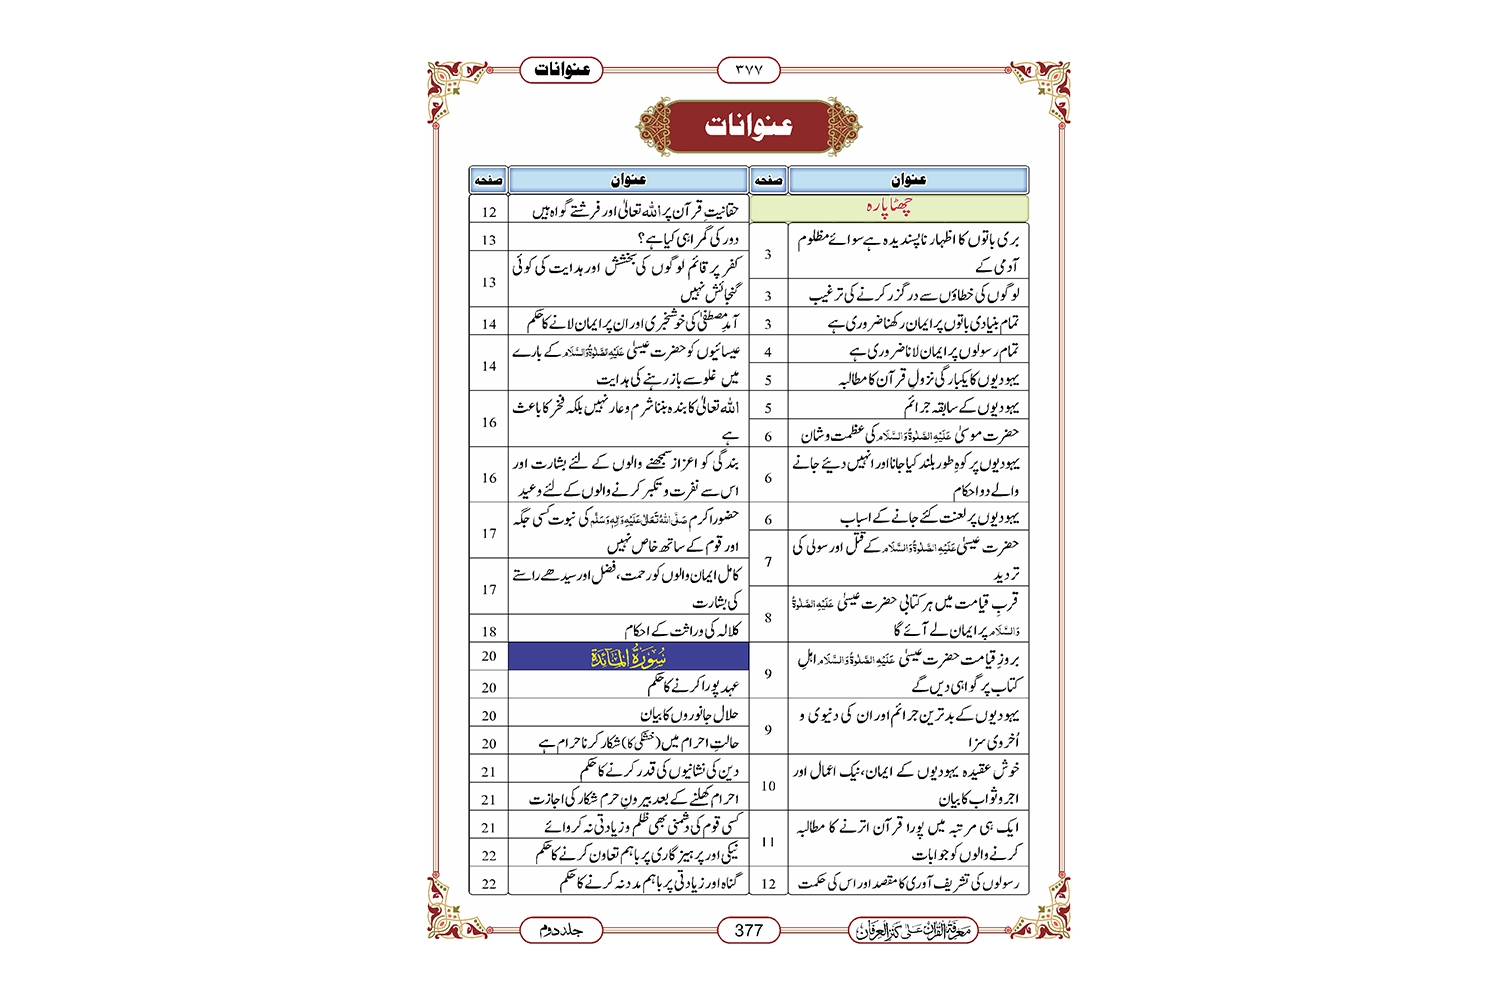 عنوانات
۳۷۷
عنوانات
عنوان
صفحہ
چھٹا پارہ
بری باتوں کا اظہار ناپسندیدہ ہے سوائے مظلوم
آدمی کے
3
لوگوں کی خطاؤں سے درگزر کرنے کی ترغیب
3
تمام بنیادی باتوں پر ایمان رکھنا ضروری ہے
3
تمام رسولوں پر ایمان لانا ضروری ہے
4
یہودیوں کا یکبارگی نزولِ قرآن کا مطالبہ
5
یہودیوں کے سابقہ جرائم
5
حضرت موسیٰ عَلَیْہِ الصَّلٰوۃُ وَالسَّلَام کی عظمت و شان
6
یہودیوں پر کوہِ طور بلند کیا جانا اور انہیں دیئے جانے
والے دو احکام
6
یہودیوں پر لعنت کئے جانے کے اسباب
6
حضرت عیسیٰ عَلَیْہِ الصَّلٰوۃُ وَالسَّلَام کے قتل اور سولی کی
تردید
7
قربِ قیامت میں ہر کتابی حضرت عیسیٰ عَلَیْہِ الصَّلٰوۃُ
وَالسَّلَام پر ایمان لے آئے گا
8
بروزِ قیامت حضرت عیسیٰ عَلَیْہِ الصَّلٰوۃُ وَالسَّلَام اہلِ
کتاب پر گواہی دیں گے
9
یہودیوں کے بدترین جرائم اور ان کی دنیوی و
اُخروی سزا
9
خوش عقیدہ یہودیوں کے ایمان، نیک اعمال اور
اجر و ثواب کا بیان
10
ایک ہی مرتبہ میں پورا قرآن اترنے کا مطالبہ
کرنے والوں کو جوابات
11
رسولوں کی تشریف آوری کا مقصد اور اس کی حکمت
12
عنوان
صفحہ
حقانیتِ قرآن پر اللہ تعالیٰ اور فرشتے گواہ ہیں
12
دور کی گمراہی کیا ہے؟
13
کفر پر قائم لوگوں کی بخشش اور ہدایت کی کوئی
گنجائش نہیں
13
آمدِ مصطفیٰ کی خوشخبری اور ان پر ایمان لانے کا حکم
14
عیسائیوں کو حضرت عیسیٰ عَلَیْہِ الصَّلٰوۃُ وَالسَّلَام کے بارے
میں غلو سے باز رہنے کی ہدایت
14
اللہ تعالیٰ کا بندہ بننا شرم و عار نہیں بلکہ فخر کا باعث
ہے
16
بندگی کو اعزاز سمجھنے والوں کے لئے بشارت اور
اس سے نفرت و تکبر کرنے والوں کے لئے وعید
16
حضور اکرم صَلَّی اللہُ تَعَالٰی عَلَیْہِ وَاٰلِہٖ وَسَلَّم کی نبوت کسی جگہ
اور قوم کے ساتھ خاص نہیں
17
کامل ایمان والوں کو رحمت، فضل اور سیدھے راستے
کی بشارت
17
کلالہ کی وراثت کے احکام
18
سُوْرَۃُ الْمَآئِدَۃ
20
عہد پورا کرنے کا حکم
20
حلال جانوروں کا بیان
20
حالتِ احرام میں (خشکی کا) شکار کرنا حرام ہے
20
دین کی نشانیوں کی قدر کرنے کا حکم
21
احرام کھلنے کے بعد بیرونِ حرم شکار کی اجازت
21
کسی قوم کی دشمنی بھی ظلم و زیادتی نہ کروائے
21
نیکی اور پرہیزگاری پر باہم تعاون کرنے کا حکم
22
گناہ اور زیادتی پر باہم مدد نہ کرنے کا حکم
22
معرفۃ القرآن علی کنز العرفان
377
جلد دوم